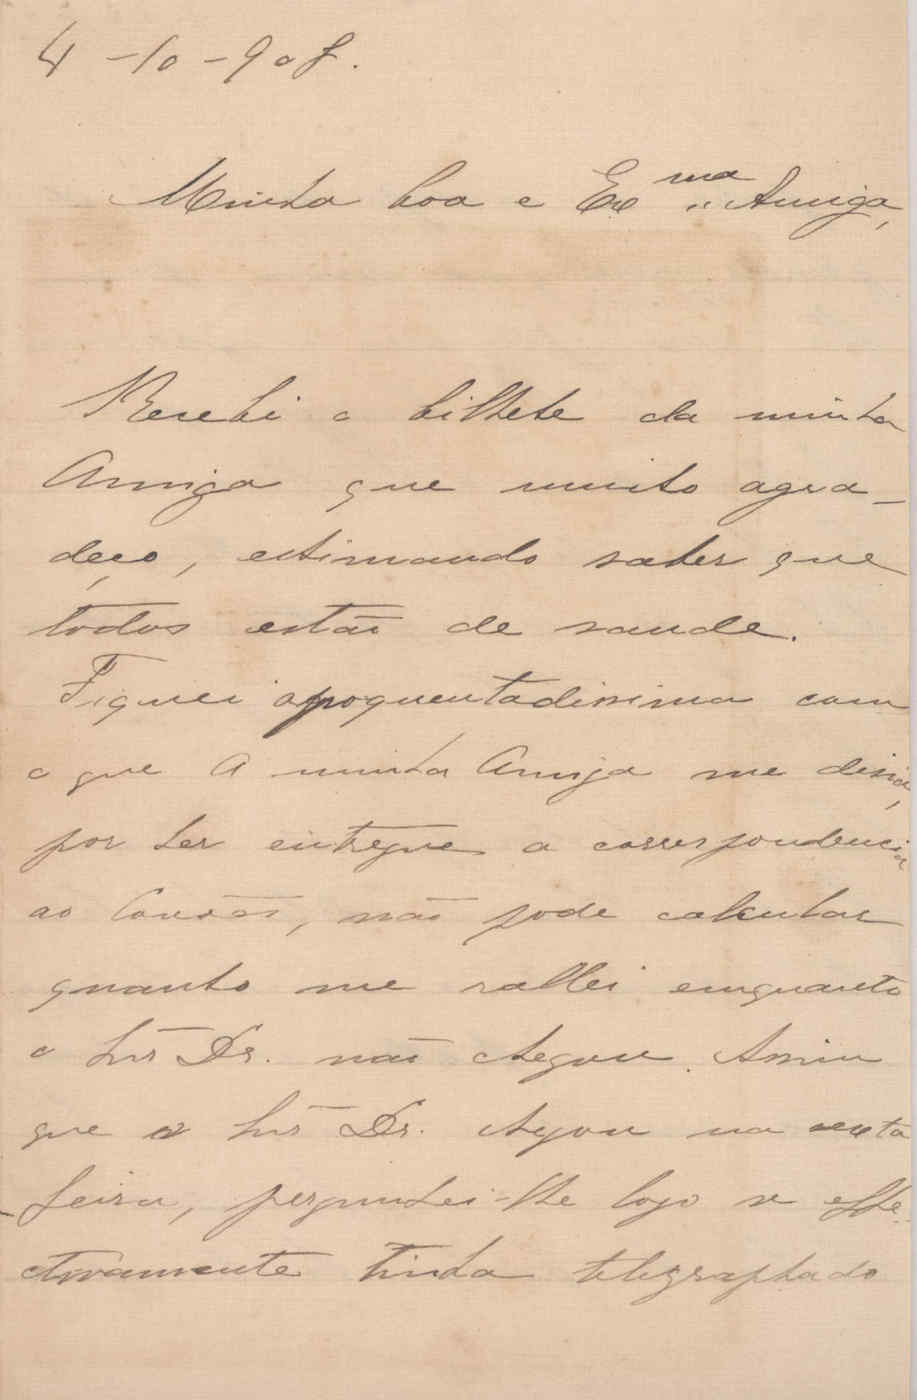 4-10-908.
Minha boa e Ex.ma Amiga,
Recebi o bilhete da minha
Amiga que muito agra-
deço, estimando saber que
todos estão de saude.
Fiquei apoquentadissima com
o que a minha Amiga me dizia,
por ter entregue a correspondencia
ao, não pode calcular
quanto me rallei emquanto
o Snr Dr. não chegou. Assim
que o Snr Dr. chegou na sexta
feira, perguntei-lhe logo se effe-
ctivamente tinha telegraphado